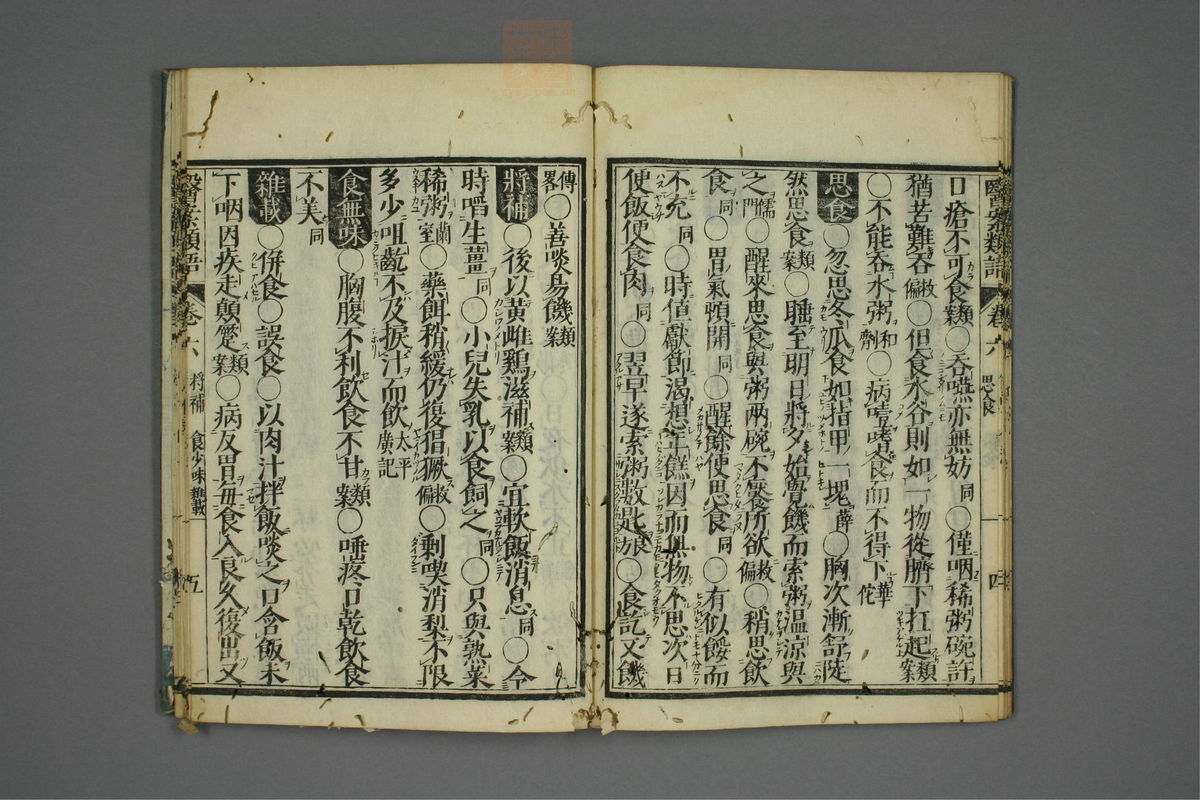 口瘡不可食類案〇吞嚥亦無妨同〇僅咽稀粥碗許
猶若難吞救偏〇但食水谷則如一物從臍下扛起類案
〇不能吞水粥和劑〇病噎嗜食而不得下華佗
思食〇忽思冬瓜食如指甲一塊薛〇胸次漸舒陡
然思食類案〇睡至明日將夕始覺饑而索粥溫涼與
之儒門〇醒來思食與粥兩碗不饜所欲救偏〇稍思飲
食同〇胃氣頓開同〇醒餘便思食同〇有似餒而
不充同〇時值獻節渴想年饌因而無物不思次日
便飯便食肉同〇翌早遂索粥數匙旅〇食訖又饑
傳畧〇善啖易饑類案
將補〇後以黃雌鷄滋補類案〇宜軟飯消息同〇令
時嚼生薑同〇小兒失乳以食飼之同〇只與熟菜
稀粥蘭室〇藥餌稍緩仍復猖獗救偏〇剩喫消梨不限
多少咀齕不及捩汁而飲太平廣記
食無味〇胸腹不利飲食不甘類案〇唾疼口乾飲食
不美同
雜載〇併食〇誤食〇以肉汁拌飯啖之口含飯未
下咽因疾走顛蹷類案〇病反胃每食入良久復出又
醫案類語 卷六 思食 四
醫案類語 卷六 将補 食少味 雜載 五